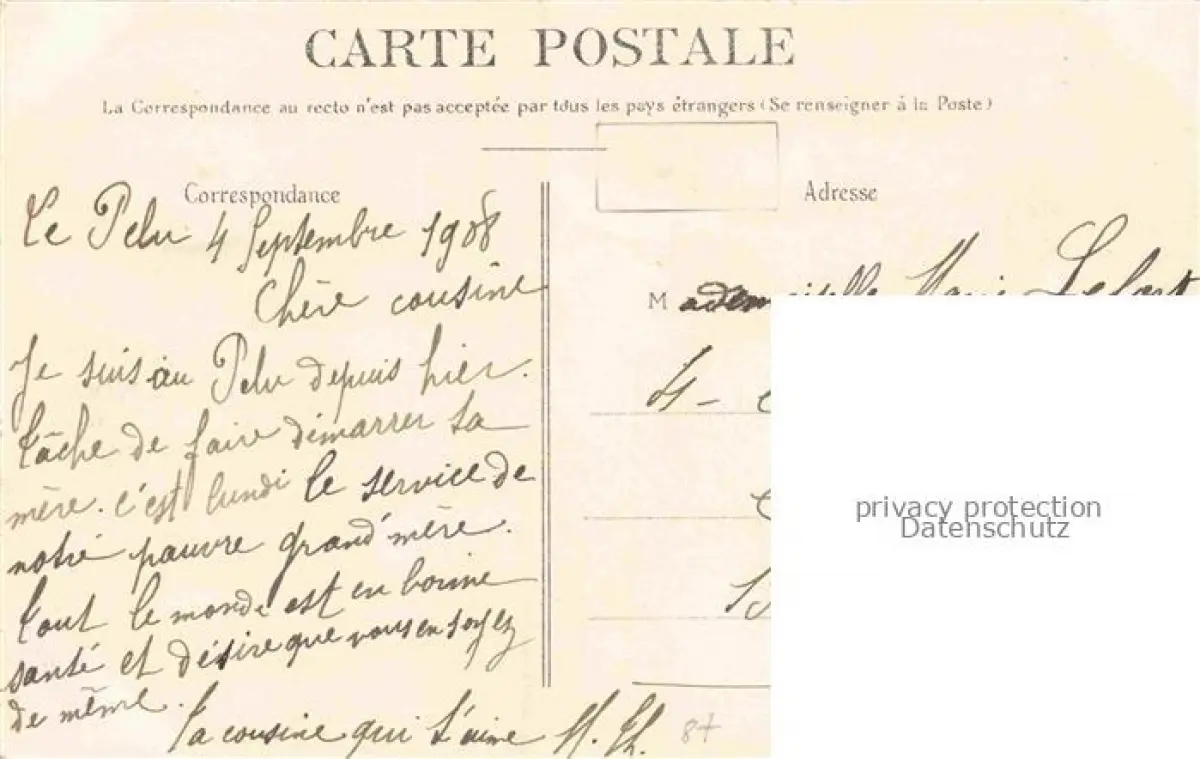 CARTE POSTALE
La Correspondance au recto n'est pas acceptée par tous les pays étrangers (Se renseigner à la Poste)
Correspondance
Le Pelu 4 Septembre 1908
Chère cousine
Je suis au Pelu depuis hier.
tâche de faire démarrer ta
mère. c'est lundi le service de
notre pauvre grand'mère.
tout le monde est en bonne
santé et désire que vous en soyez
de même.
Ta cousine qui t'aime M. Th.
87
Adresse
Mademoiselle Marie
4 -
privacy protection
Datenschutz